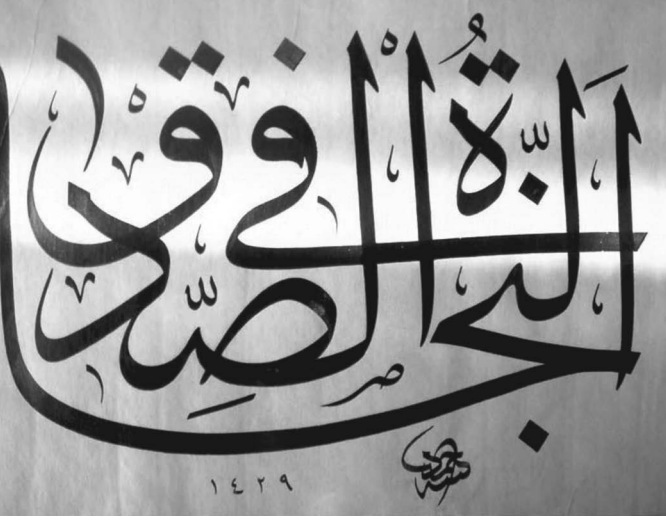 النَّجَاةُ في الصِّدْق
١٤٢٩